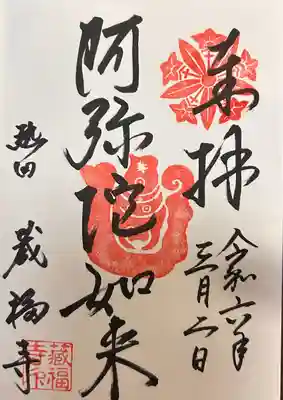 奉拝
令和六年
三月二日
阿弥陀如来
熱田 蔵福寺
藏福
寺印